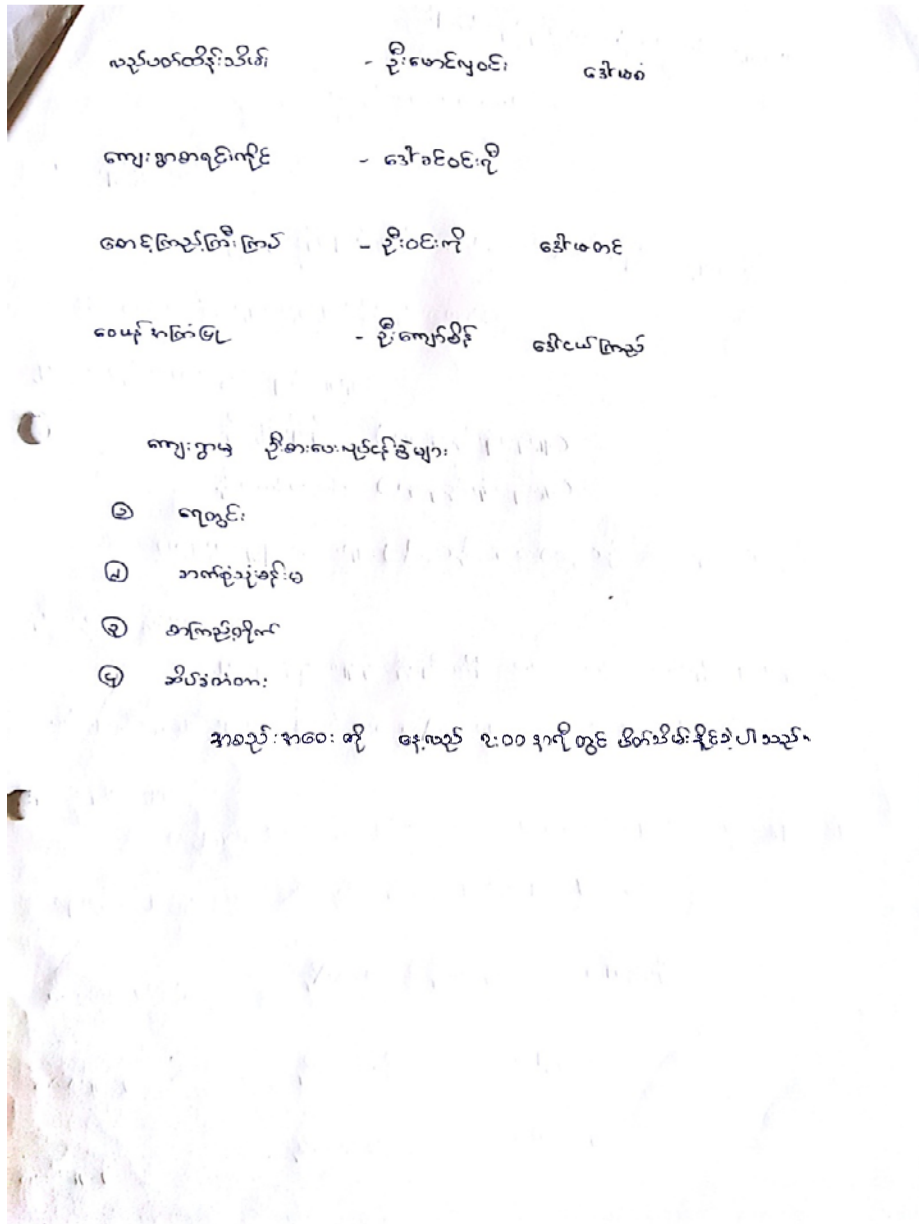 လည်ပတ်ထိန်းသိမ်း - ဦးမောင်လှဝင်း ဒေါ်မစံ
ကျေးရွာစာရင်းကိုင် - ဒေါ်ခင်ဝင်းရီ
စောင့်ကြည့်ကြီးကြပ် - ဦးဝင်းကို ဒေါ်မတင်
ဝေယန်အကြံပြု - ဦးကျော်စိန် ဒေါ်ငယ်ကြည်
ကျေးရွာမှ ဦးစားပေးလုပ်ငန်းခွဲများ
၁ ရေတွင်း
၂ ဘက်စုံသုံးခန်းမ
၃ စာကြည့်တိုက်
၄ ဆိပ်ခံတံတား
အစည်းအဝေးကို နေ့လည် ၃:၀၀ နာရီတွင် ပိတ်သိမ်းနိုင်ခဲ့ပါသည်။